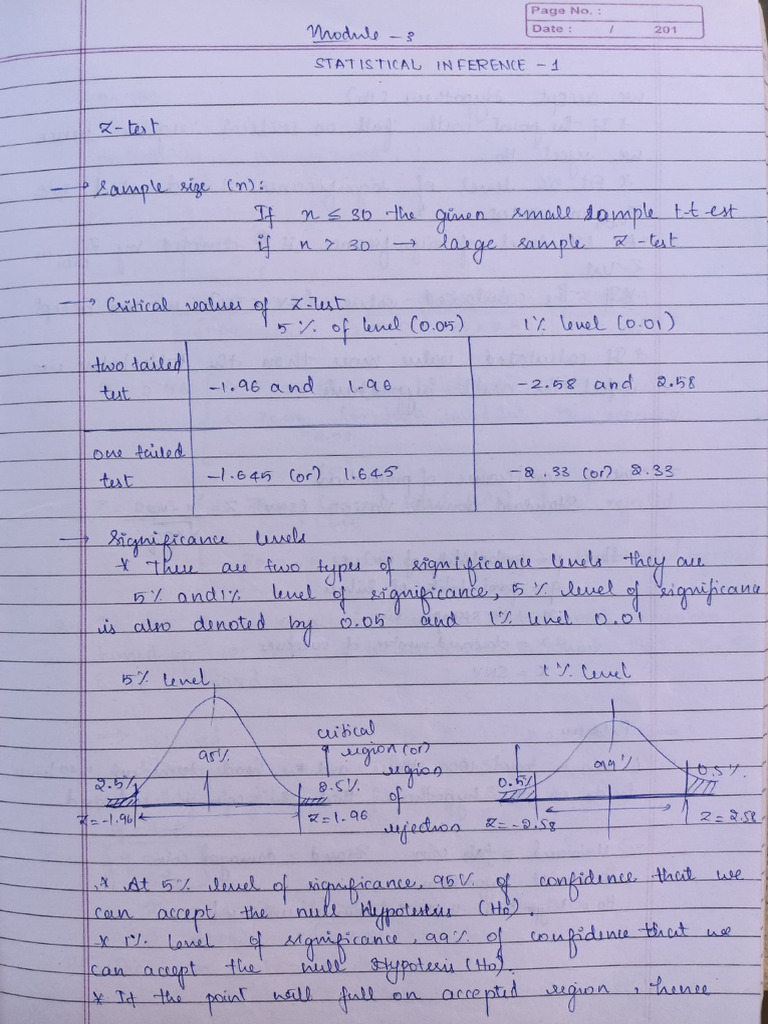 Page No. :
Date : / 201
Module - 3
STATISTICAL INFERENCE - 1
Z-test
→ Sample size (n):
If n ≤ 30 the given small sample t-test
if n > 30 → large sample Z-test
→ Critical values of Z-test
5% of level (0.05) 1% level (0.01)
two tailed test -1.96 and 1.96 -2.58 and 2.58
one tailed test -1.645 (or) 1.645 -2.33 (or) 2.33
→ Significance levels
* There are two types of significance levels they are
5% and 1% level of significance, 5% level of significance
is also denoted by 0.05 and 1% level 0.01
5% level 1% level
95% 99%
critical region (or) region of rejection
2.5% 2.5% 0.5% 0.5%
Z=-1.96 Z=1.96 Z=-2.58 Z=2.58
* At 5% level of significance, 95% of confidence that we
can accept the null Hypotesius (H0).
* 1% level of significance, 99% of confidence that we
can accept the null Hypotesis (H0).
* If the point will full on accepted region, hence